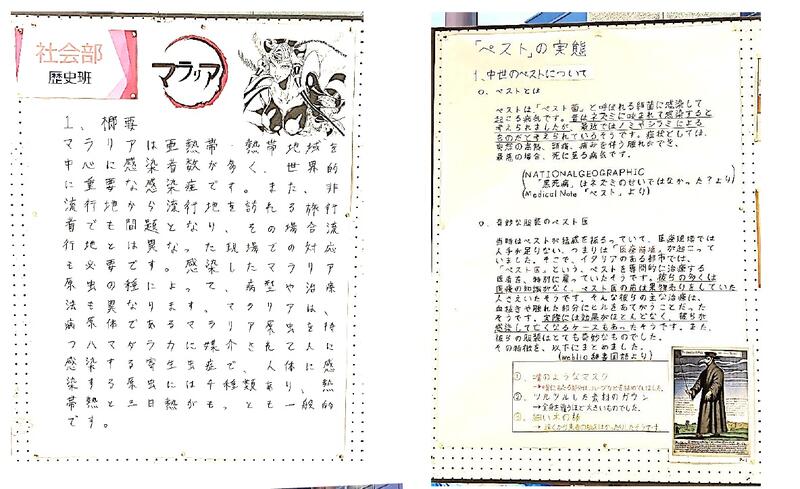 社会部
歴史班
マラリア
1、概要
マラリアは亜熱帯・熱帯地域を
中心に感染者数が多く、世界的
に重要な感染症です。また、非
流行地から流行地を訪れる旅行
者でも問題となり、その場合流
行地とは異なった現場での対応
も必要です。感染したマラリア
原虫の種によって、病型や治療
法も異なります。マラリアは、
病原体であるマラリア原虫を持
つハマダラカに媒介されて人に
感染する寄生虫症で、人体に感
染する原虫には4種類あり、熱
帯熱と三日熱がもっとも一般的
です。
「ペスト」の実態
1.中世のペストについて
○、ペストとは
ペストは「ペスト菌」と呼ばれる細菌に感染して
起こる病気です。昔はネズミに咬まれて感染すると
考えられましたが、最近ではノミやシラミによる
ものだと考えられているそうです。症状としては、
突然の高熱、頭痛、痛みを伴う腫れがでて、
最悪の場合、死に至る病気です。
(NATIONALGEOGRAPHIC
「黒死病」はネズミのせいではなかった?より)
(Medical Note「ペスト」より)
○、奇妙な服装のペスト医
当時はペストが猛威を振るっていて、医療現場では
人手が足りない、つまりは「医療崩壊」が起こって
いました。そこで、イタリアのある都市では、
「ペスト医」という、ペストを専門的に治療する
医者を、特別に雇っていたそうです。彼らの多くは
医療の知識がなく、ペスト医の前は果物売りをしていた
人さえいたそうです。そんな彼らの主な治療は、
血抜きや腫れた部分にヒルをあてがうことだった
そうです。実際には効果がほとんどなく、彼らが
感染して亡くなるケースもあったそうです。また、
彼らの服装はとても奇妙なものでした。
その特徴を、以下にまとめました。
(weblio辞書国語より)
①、嘴のようなマスク
②、ツルツルした素材のガウン
→全身を覆うほど大きいものでした。
③、細い木の棒